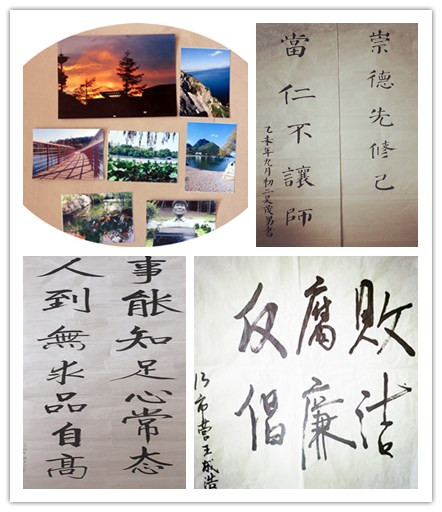 崇德先修己
當仁不讓師
乙未年九月初二
事能知足心常态
人到無求品自高
反腐败
倡廉洁
市营王成浩